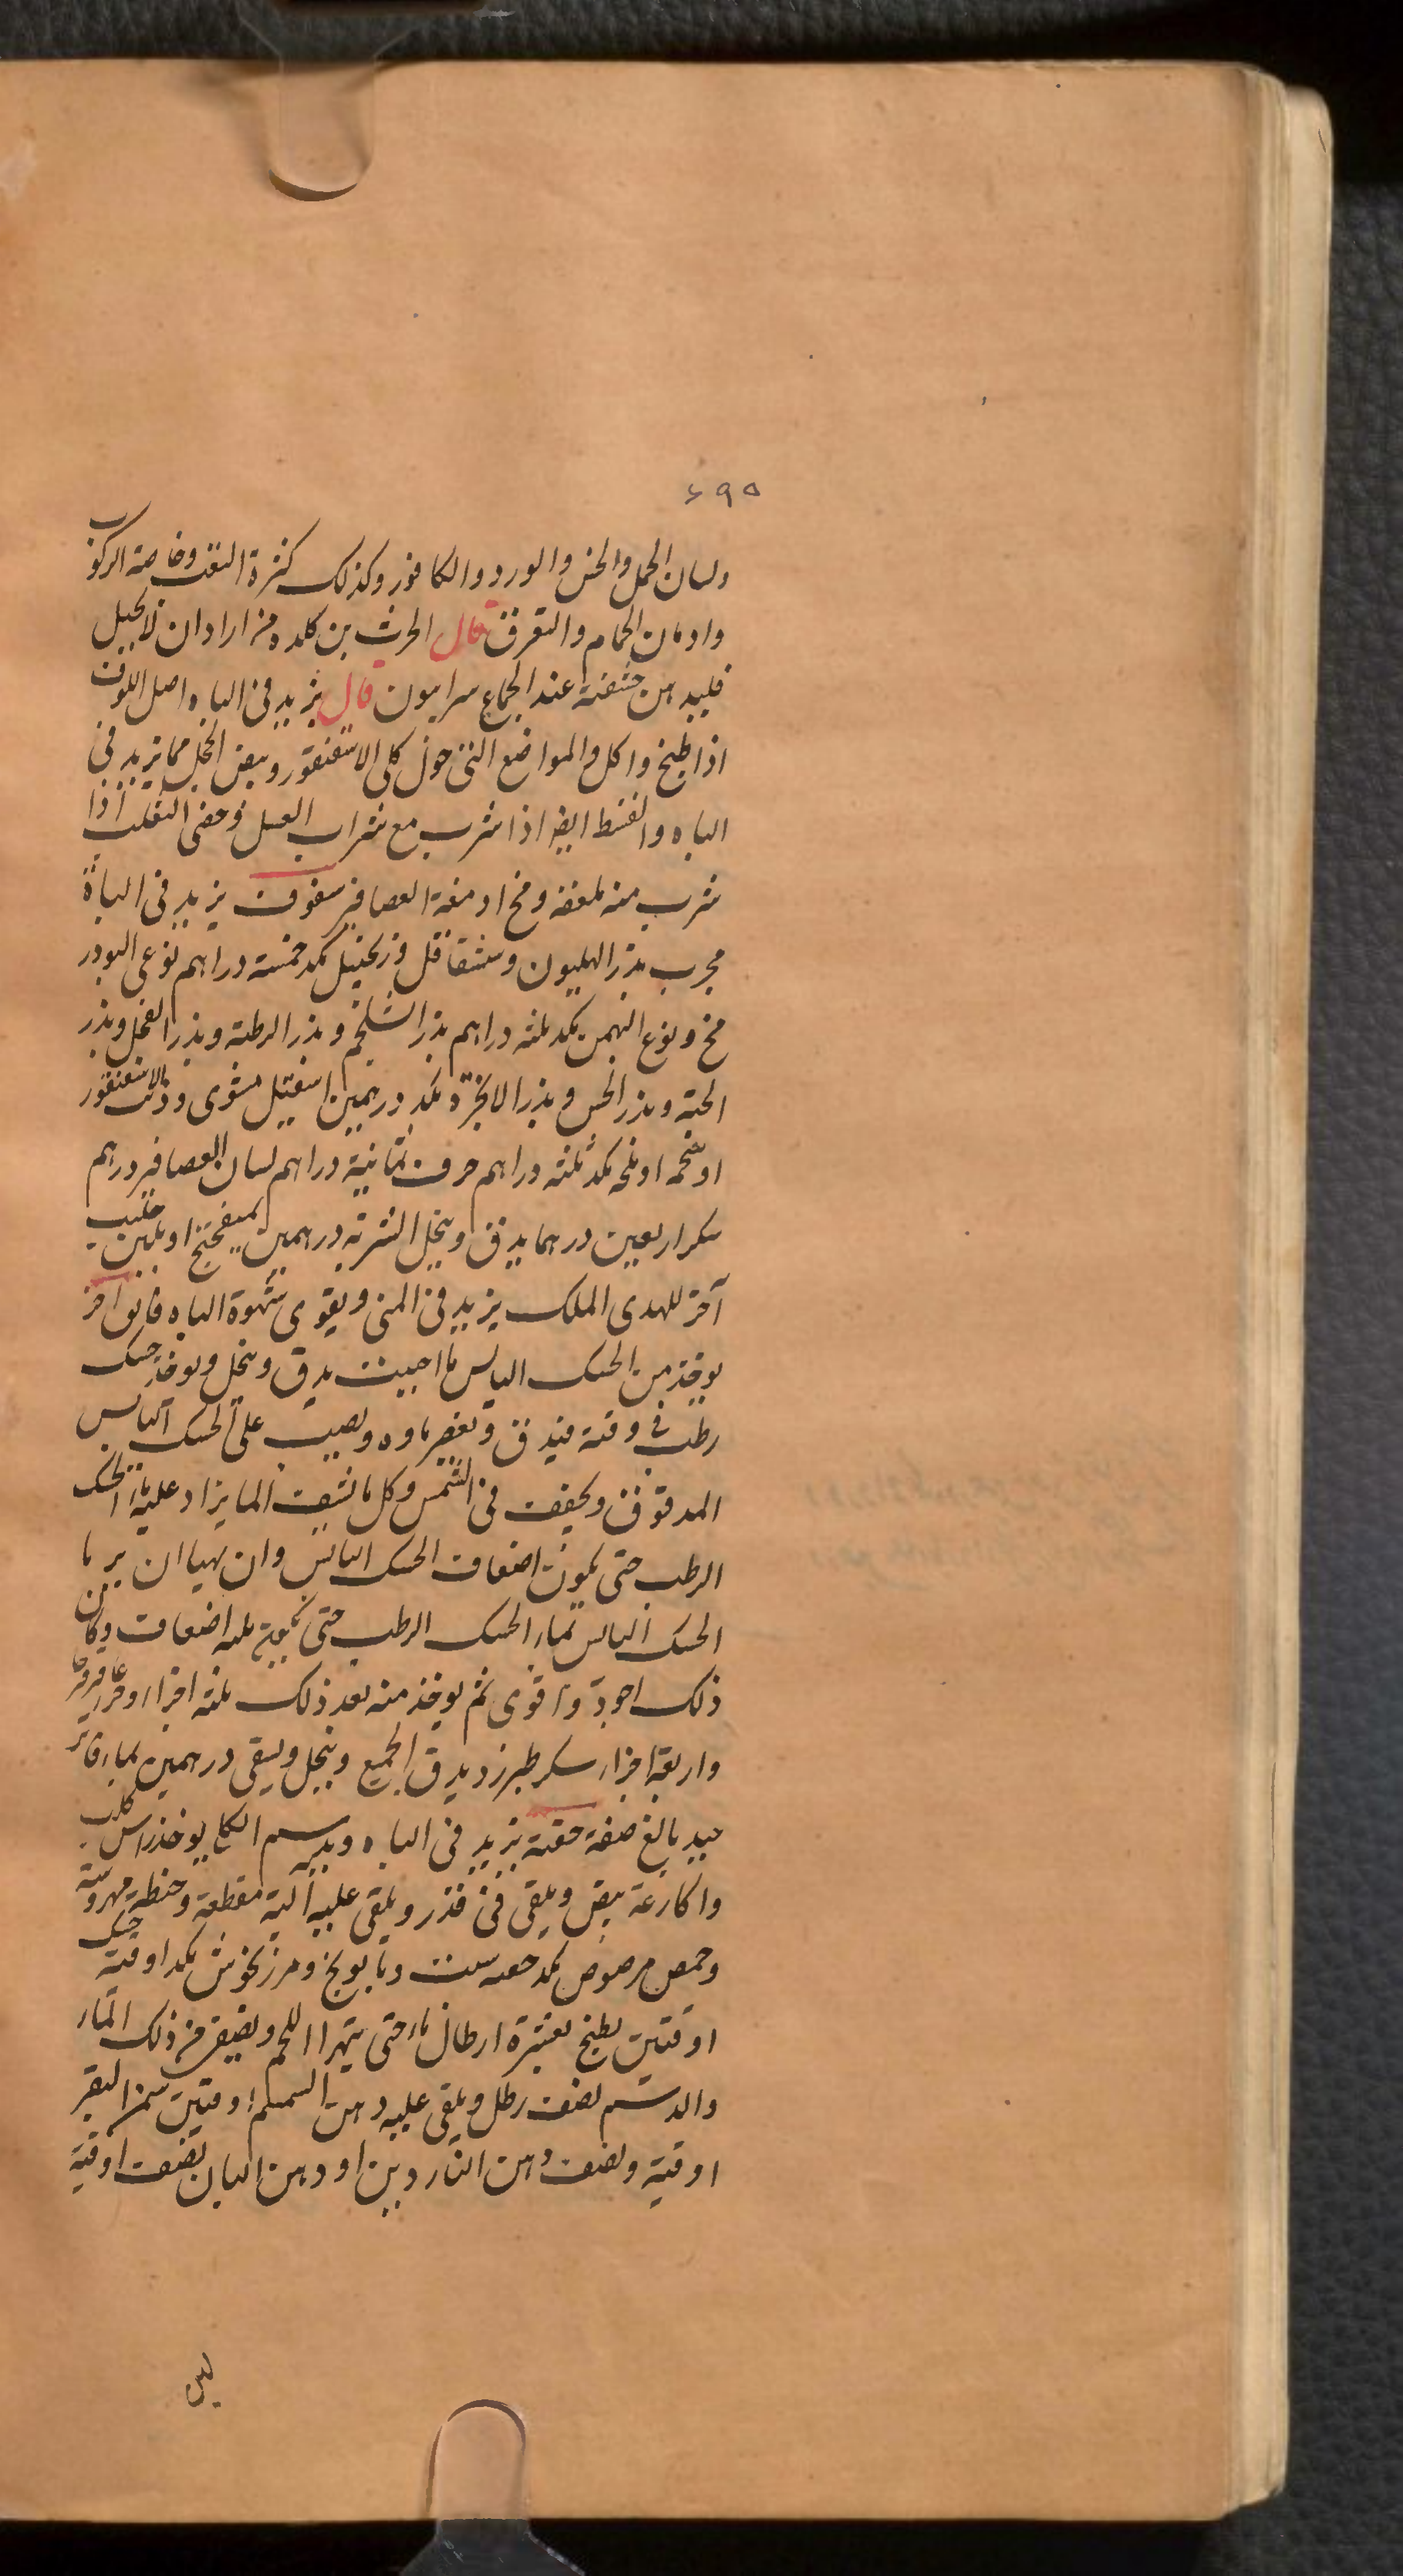 ۶۹۵
ولسان الحمل والخس والورد والكافور وكذلك كثرة التعب وخاصة الركوب
وادمان الحمام والتعرق قال الحرث بن كلده من اراد ان لا يحبل
فليدهن حشفته عند الجماع سرابيون قال يزيد فى الباه اصل اللوف
اذا طبخ واكل والمواضع التى حول كلى الاسقنقور وبيض الحجل مما يزيد فى
الباه والقسط ايضا اذا شرب مع شراب العسل وخصى الثعلب اذا
شرب منه ملعقة ومخ ادمغة العصافير سفوف يزيد فى الباة
مجرب بذر الهليون وشقاقل وزنجبيل كمد خمسة دراهم نوعى البودر
مخ ونوع البهمن كمد ثلثه دراهم بذر الشلجم وبذر الرطبة وبذر الفجل وبذر
الحبة وبذر الخس وبذر الانجرة كمد درهمين اسقيل مشوى وذنب الاسقنقور
او شحمه او ملحه كمد ثلثه دراهم حرف ثمانية دراهم لسان العصافير درهم
سكر اربعين درهما يدق وينخل الشربة درهمين بميفختج او بلبن حليب
آخر للهدى الملك يزيد فى المنى ويقوى شهوة الباه فايق اخر
يوخذ من الحسك اليابس ما احببت يدق وينخل ويوخذ حسك
رطب فى وقته فيدق ويعصر ماوه ويصب على الحسك اليابس
المدقوق ويجفف فى الشمس وكل ما نشف الما يزاد عليه ماء الحسك
الرطب حتى يكون اضعاف الحسك اليابس وان تهيا ان يربا
الحسك اليابس بماء الحسك الرطب حتى ثلثه اضعاف وكان
ذلك اجود واقوى ثم يوخذ منه بعد ذلك ثلثه اجزاء وجزء عاقرقرحا
واربعة اجزاء سكر طبرزد يدق الجميع وينخل ويسقى درهمين بماء فاتر
جيد بالغ صفة حقنة يزيد فى الباه ويدسم الكلى يوخذ راس كلب
واكارعه بيض ويلقى فى قدر ويلقى عليه الية مقطعة وحنطة مهروسة
وحمص مرضوض كمد شبت وبابونج ومرزنجوش كمد اوقية حسك
اوقتين يطبخ بعشرة ارطال ماء حتى يتهرا اللحم ويصفى من ذلك الماء
والدسم نصف رطل ويلقى عليه دهن السمسم اوقتين سمن البقر
اوقية ونصف دهن الناردين او دهن البان نصف اوقية